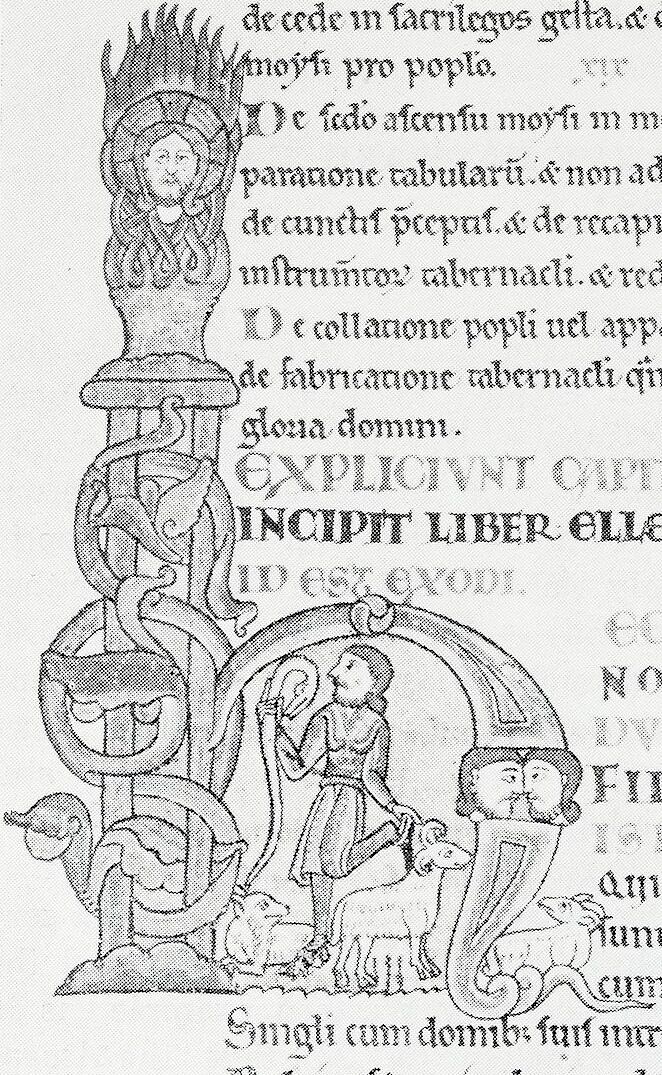 de cede in sacrilegos gesta. &
moysi pro poplo. xix
De scdo ascensu moysi in m
paratione tabularū. & non ad
de cunctis p̄ceptis. & de recapi
instrum̄toꝝ tabernacli. & red
De collatione popli uel appa
de fabricatione tabernacli q̄m
gloria domini.
EXPLICIVNT CAPIT
INCIPIT LIBER ELLE
ID EST EXODI.
EC
NO
DV
FII
ISR
Qui
sunt
cum
Singli cum domib; suis intr